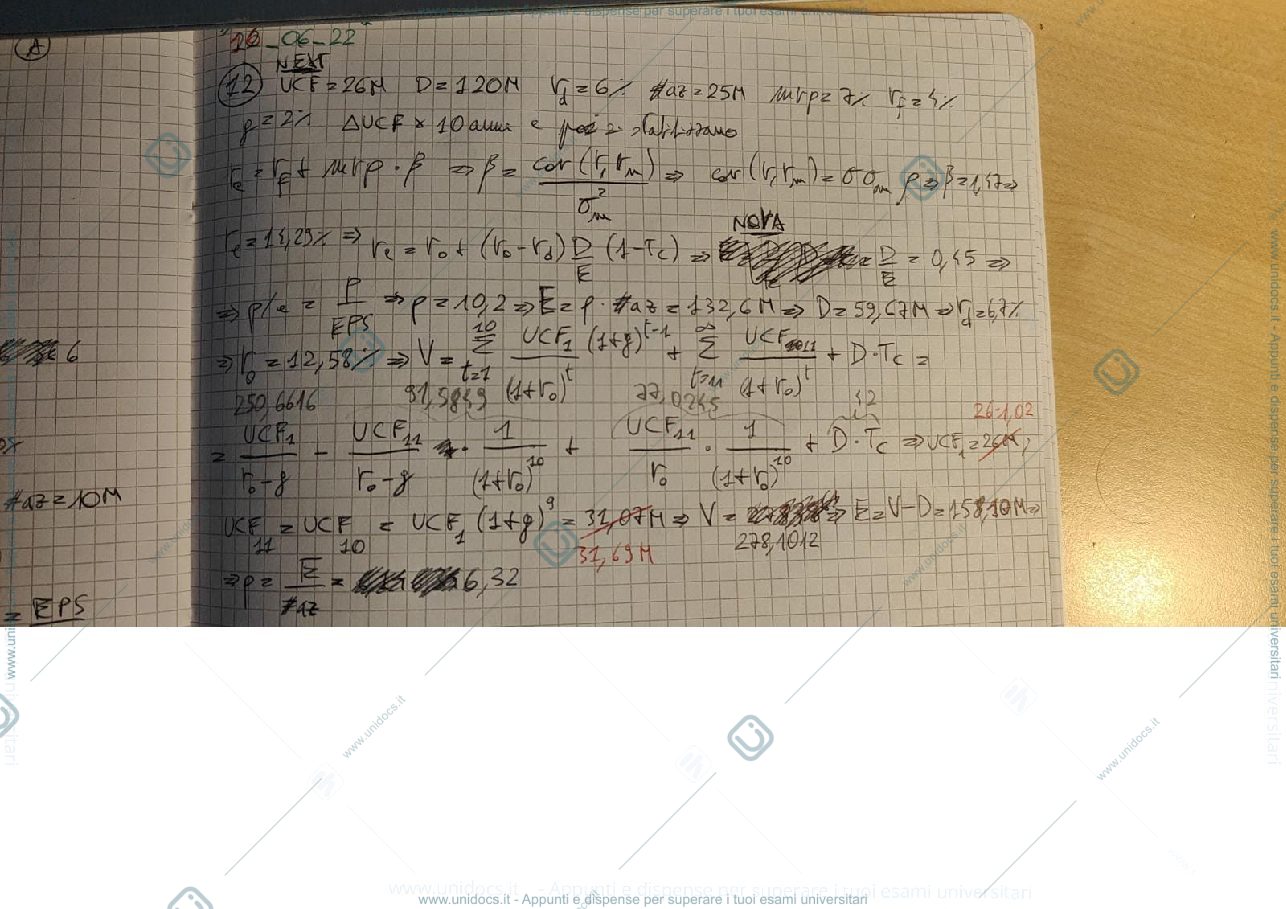 www.unidocs.it - Appunti e dispense per superare i tuoi esami universitari
A
10_06_22
NEXT
12 UCF = 26M D = 120M r_d = 6% #az = 25M mrp = 7% r_f = 4%
g = 2% ΔUCF × 10 anni e poi si stabilizzano
r_e = r_f + mrp · β ⇒ β = cov(r, r_m) / σ_m² ⇒ cov(r, r_m) = σ σ_m ρ ⇒ β = 1,47 ⇒
NOVA
r_e = 14,29% ⇒ r_e = r_0 + (r_0 - r_d) D/E (1 - T_c) ⇒ D/E = 0,45 ⇒
⇒ p/e = P/EPS ⇒ p = 10,2 ⇒ E = p · #az = 132,6M ⇒ D = 59,67M ⇒ r_d = 6,7%
6
⇒ r_0 = 12,58% ⇒ V = Σ_{t=1}^{10} UCF_1 (1+g)^{t-1} / (1+r_0)^t + Σ_{t=11}^{∞} UCF_11 / (1+r_0)^t + D·T_c =
250,6616 91,5849 77,0245 42
26·1,02
= UCF_1 / (r_0 - g) - UCF_11 / (r_0 - g) · 1 / (1+r_0)^10 + UCF_11 / r_0 · 1 / (1+r_0)^10 + D·T_c ⇒ UCF_1 = 26M;
#az = 10M
UCF_11 = UCF_10 = UCF_1 (1+g)^9 = 31,07M ⇒ V = ⇒ E = V - D = 158,10M ⇒
31,69M 278,1012
⇒ p = E / #az = 6,32
= EPS
www.unidocs.it
www.unidocs.it
www.unidocs.it - Appunti e dispense per superare i tuoi esami universitari
www.unidocs.it - Appunti e dispense per superare i tuoi esami universitari